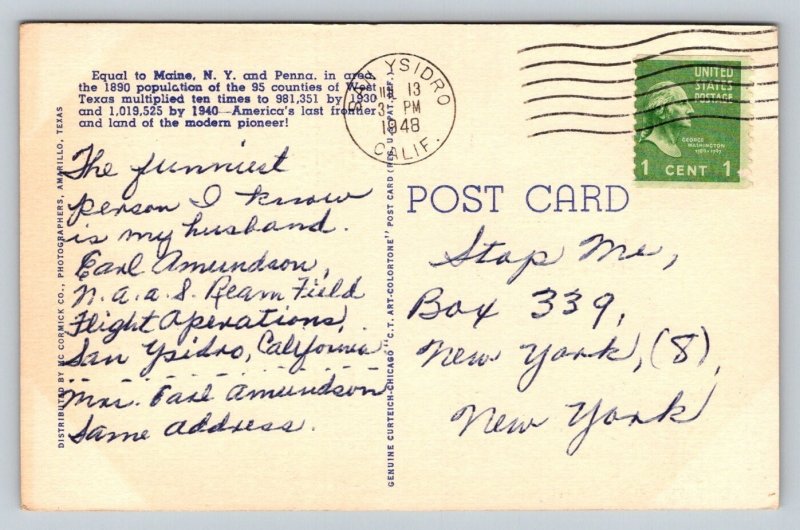 Equal to Maine, N. Y. and Penna. in area,
the 1890 population of the 95 counties of West
Texas multiplied ten times to 981,351 by 1930
and 1,019,525 by 1940—America's last frontier
and land of the modern pioneer!
SAN YSIDRO
13
3 PM
1948
CALIF.
UNITED
STATES
POSTAGE
GEORGE
WASHINGTON
1789-1797
1 CENT 1
POST CARD
The funniest
person I know
is my husband.
Earl Amundson,
N.a.a.S. Ream Field
Flight Operations,
San Ysidro, California
Mrs. Earl Amundson
Same address.
Stop Me,
Box 339,
New York, (8),
New York
DISTRIBUTED BY MC CORMICK CO., PHOTOGRAPHERS, AMARILLO, TEXAS
GENUINE CURTEICH-CHICAGO "C.T. ART-COLORTONE" POST CARD (REG. U.S. PAT. OFF.)